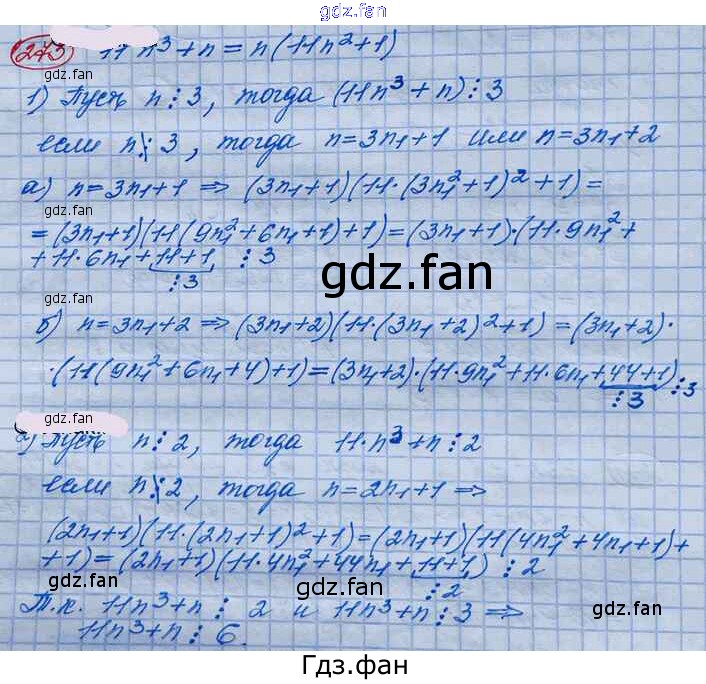 gdz.fan
273 11n³+n = n(11n²+1)
gdz.fan gdz.fan
1) Пусть n⋮3, тогда (11n³+n)⋮3
если n⋮̸3, тогда n=3n₁+1 или n=3n₁+2
а) n=3n₁+1 ⇒ (3n₁+1)(11·(3n₁²+1)²+1)=
gdz.fan gdz.fan
=(3n₁+1)(11(9n₁²+6n₁+1)+1)=(3n₁+1)·(11·9n₁²+
+11·6n₁+11+1 ⋮3
⋮3
gdz.fan
б) n=3n₁+2 ⇒ (3n₁+2)(11·(3n₁+2)²+1) = (3n₁+2)·
gdz.fan gdz.fan
·(11(9n₁²+6n₁+4)+1)=(3n₁+2)·(11·9n₁²+11·6n₁+44+1)⋮3
⋮3
gdz.fan gdz.fan
2) Пусть n⋮2, тогда 11·n³+n⋮2
если n⋮̸2, тогда n=2n₁+1 ⇒
gdz.fan
(2n₁+1)(11·(2n₁+1)²+1)=(2n₁+1)(11(4n₁²+4n₁+1)+
+1)=(2n₁+1)(11·4n₁²+44n₁+11+1) ⋮2
⋮2
gdz.fan gdz.fan
Т.к. 11n³+n⋮2 и 11n³+n⋮3 ⇒
11n³+n⋮6.
gdz.fan gdz.fan
Гдз.фан